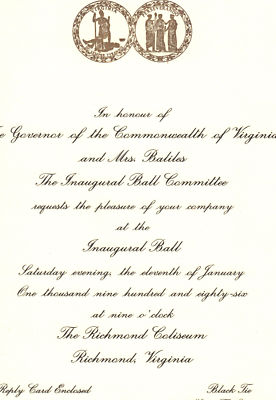 In honour of
The Governor of the Commonwealth of Virginia
and Mrs. Baliles
The Inaugural Ball Committee
requests the pleasure of your company
at the
Inaugural Ball
Saturday evening, the eleventh of January
One thousand nine hundred and eighty-six
at nine o'clock
The Richmond Coliseum
Richmond, Virginia
Reply Card Enclosed
Black Tie